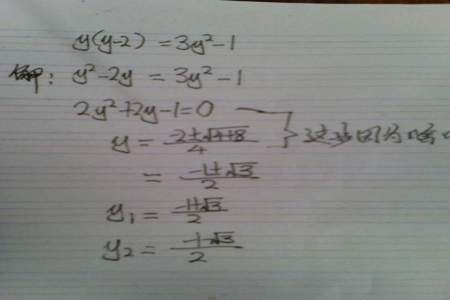 y(y-2) = 3y²-1
解: y²-2y = 3y²-1
2y²+2y-1=0
y = \frac{-2±√4+8}{4} 这步因为啥
= \frac{-1±√3}{2}
y₁ = \frac{-1+√3}{2}
y₂ = \frac{-1-√3}{2}